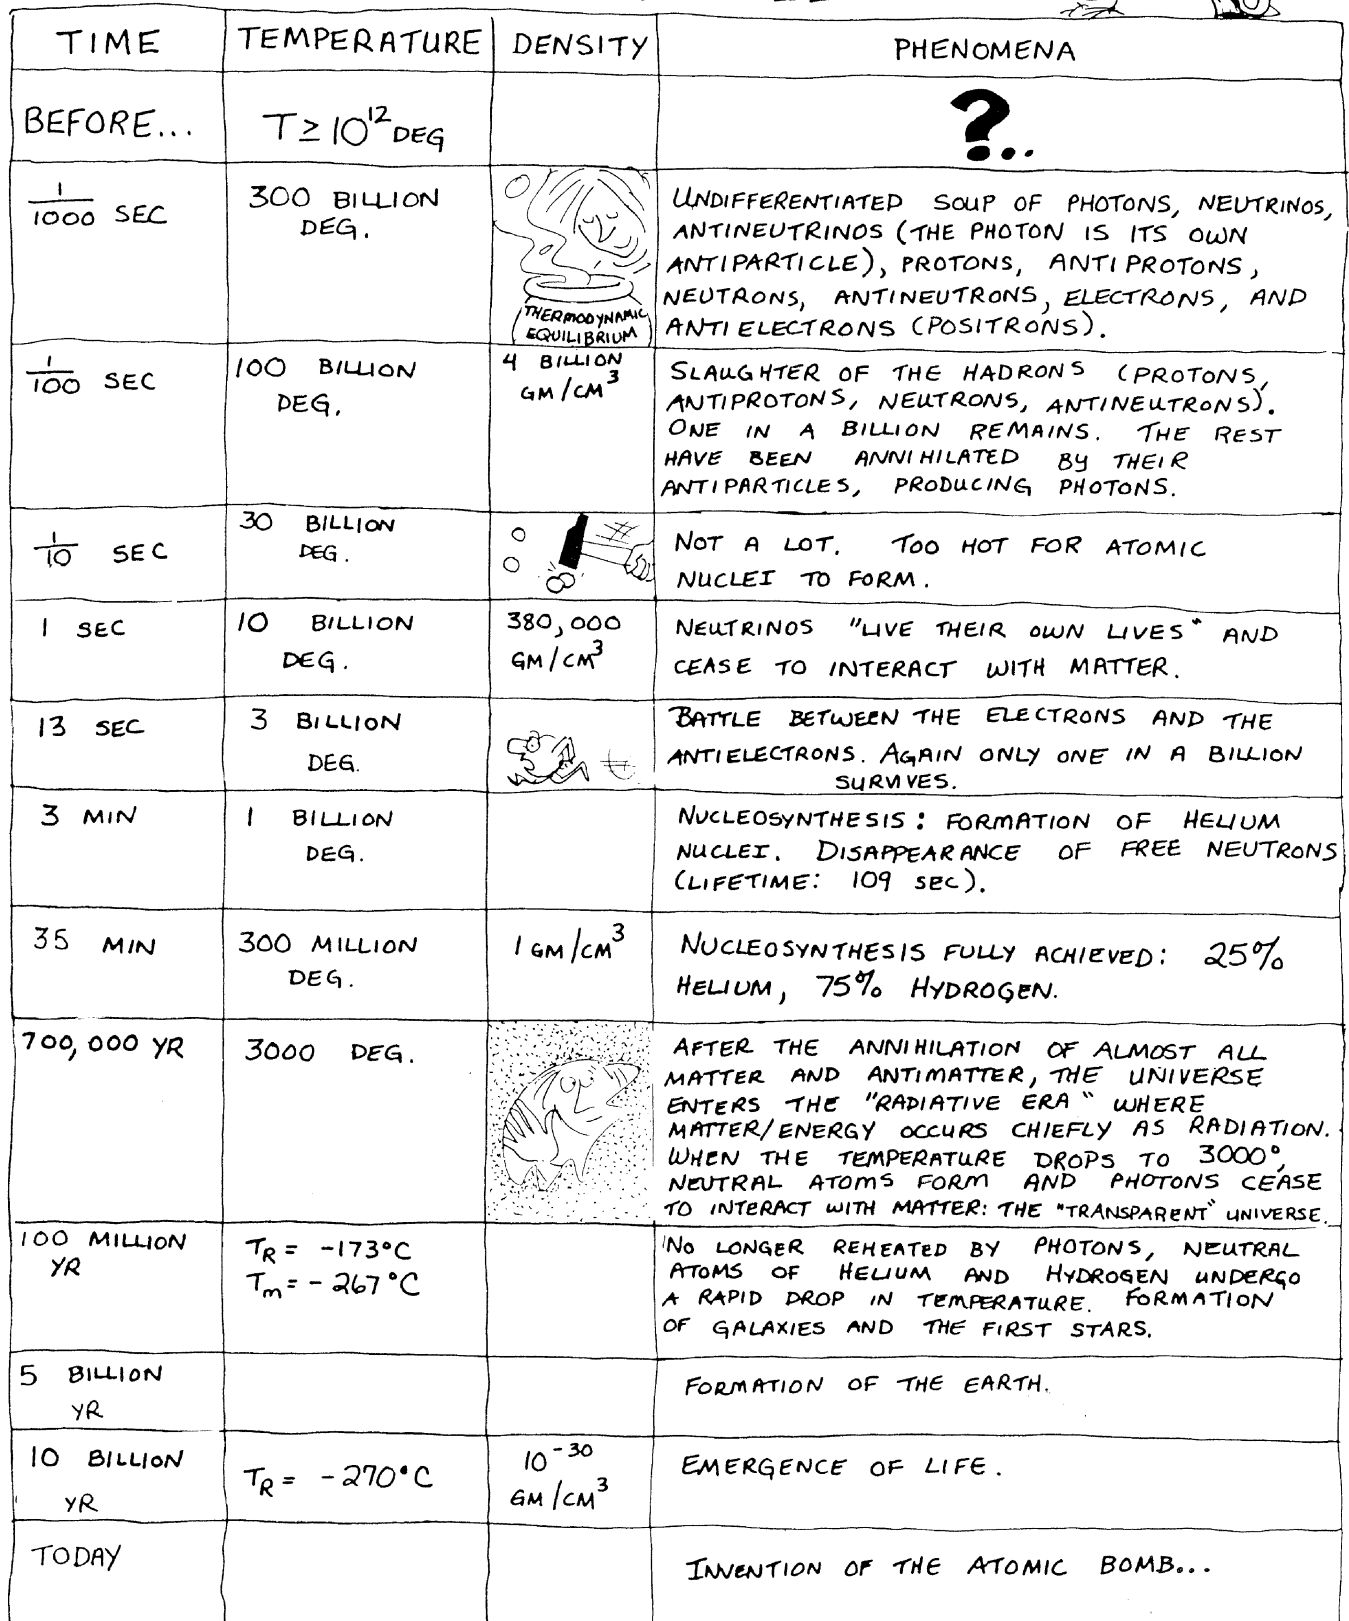 TIME TEMPERATURE DENSITY PHENOMENA
BEFORE... T ≥ 10¹² DEG ?...
1/1000 SEC
300 BILLION
DEG.
THERMODYNAMIC
EQUILIBRIUM
UNDIFFERENTIATED SOUP OF PHOTONS, NEUTRINOS,
ANTINEUTRINOS (THE PHOTON IS ITS OWN
ANTIPARTICLE), PROTONS, ANTIPROTONS,
NEUTRONS, ANTINEUTRONS, ELECTRONS, AND
ANTIELECTRONS (POSITRONS).
1/100 SEC
100 BILLION
DEG.
4 BILLION
GM/CM³
SLAUGHTER OF THE HADRONS (PROTONS,
ANTIPROTONS, NEUTRONS, ANTINEUTRONS).
ONE IN A BILLION REMAINS. THE REST
HAVE BEEN ANNIHILATED BY THEIR
ANTIPARTICLES, PRODUCING PHOTONS.
1/10 SEC
30 BILLION
DEG.
NOT A LOT. TOO HOT FOR ATOMIC
NUCLEI TO FORM.
1 SEC
10 BILLION
DEG.
380,000
GM/CM³
NEUTRINOS "LIVE THEIR OWN LIVES" AND
CEASE TO INTERACT WITH MATTER.
13 SEC
3 BILLION
DEG.
BATTLE BETWEEN THE ELECTRONS AND THE
ANTIELECTRONS. AGAIN ONLY ONE IN A BILLION
SURVIVES.
3 MIN
1 BILLION
DEG.
NUCLEOSYNTHESIS: FORMATION OF HELIUM
NUCLEI. DISAPPEARANCE OF FREE NEUTRONS
(LIFETIME: 109 SEC).
35 MIN
300 MILLION
DEG.
1 GM/CM³
NUCLEOSYNTHESIS FULLY ACHIEVED: 25%
HELIUM, 75% HYDROGEN.
700,000 YR
3000 DEG.
AFTER THE ANNIHILATION OF ALMOST ALL
MATTER AND ANTIMATTER, THE UNIVERSE
ENTERS THE "RADIATIVE ERA" WHERE
MATTER/ENERGY OCCURS CHIEFLY AS RADIATION.
WHEN THE TEMPERATURE DROPS TO 3000°,
NEUTRAL ATOMS FORM AND PHOTONS CEASE
TO INTERACT WITH MATTER: THE "TRANSPARENT" UNIVERSE.
100 MILLION
YR
T_R = -173°C
T_m = -267°C
NO LONGER REHEATED BY PHOTONS, NEUTRAL
ATOMS OF HELIUM AND HYDROGEN UNDERGO
A RAPID DROP IN TEMPERATURE. FORMATION
OF GALAXIES AND THE FIRST STARS.
5 BILLION
YR
FORMATION OF THE EARTH.
10 BILLION
YR
T_R = -270°C
10⁻³⁰
GM/CM³
EMERGENCE OF LIFE.
TODAY
INVENTION OF THE ATOMIC BOMB...